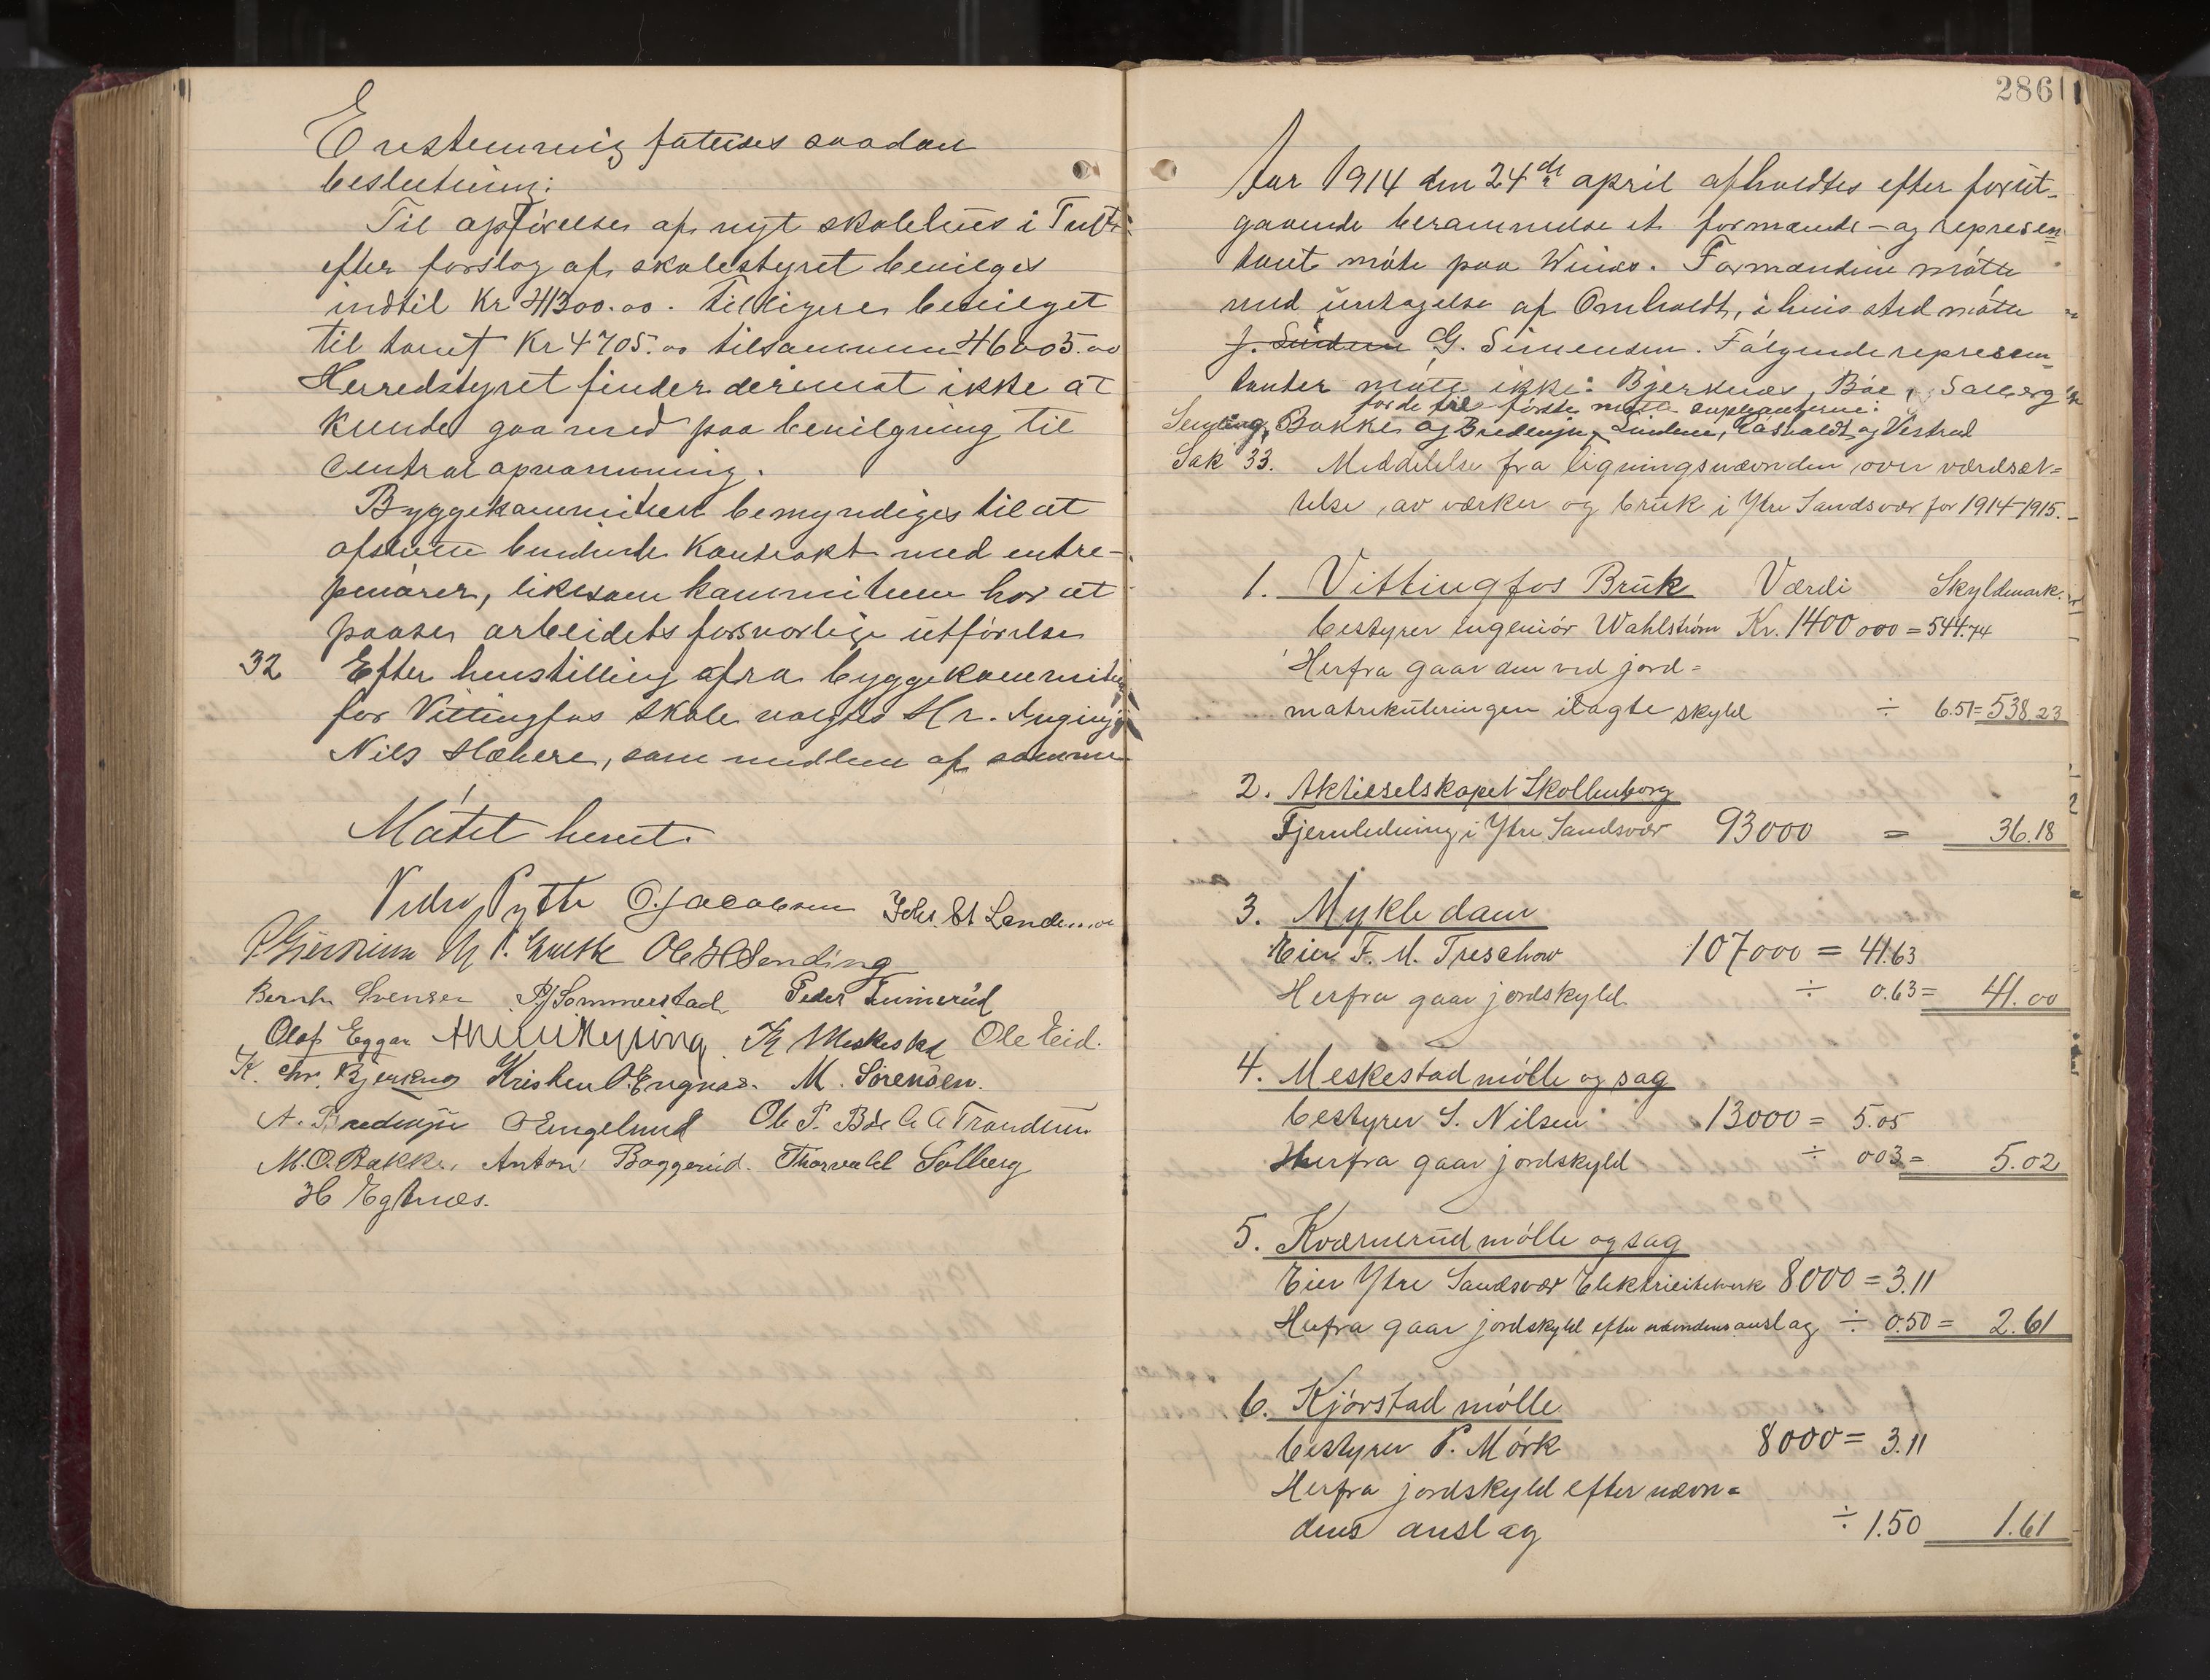 Enstemmig fatedes saadan
beslutning:
Til opførelse af nyt skolehus i Tuft
efter forslag af skolestyret bevilges
indtil Kr 41300.00. Tidligere bevilget
til tomt Kr 4705.00 tilsammen 46005.00
Herredstyret finder derimot ikke at
kunde gaa med paa bevilgning til
Central opvarmning.
Byggekommiteen bemyndiges til at
afslutte bindende Kontrakt med entre-
penører, likesom kommiteen har at
paase arbeidets forsvarlige utførelse
32 Efter henstilling fra byggekommite
for Vittingfos skole valgtes Hr.
Nils, som medlem af samme
Møtet hevet.
Pytte O. Jacobsen Joh. St
Ole H Sending
Bernh. Svensen P. Sommerstad Peder
Olaf Eggar Meskestad Ole Eid.
K. Chr. Bjerknes Kristen P. Engnæs. M. Sørensen.
A. Engelund Ole P. Bøe
M. O. Bakke. Anton Baggerud. Thorvald Solberg
H Egtnæs.
286
Aar 1914 den 24de april afholdtes efter forut-
gaaende berammelse et formænds- og represen
tant møte paa Winæs. Formændene møtte
med undtagelse af Omholdt, i hvis sted møtte
J. Lindem G. Simensen. Følgende represen
tanter møtte ikke: Bjerknæs, Bøe, Solberg
for de til første møtte supleanterne:
Sending, Bakke og Lindem, og
Sak 33. Meddelelse fra ligningsnævnden over værdsæt=
telse av værker og bruk i Ytre Sandsvær for 1914-1915.
1. Vittingfos Bruk Værdi Skyldmark.
bestyrer ingeniør Wahlstrøm Kr. 1400 000 = 544.74
Herfra gaar den ved jord=
matrikuleringen ilagte skyld ÷ 6.51 = 538.23
2. Aktieselskapet Skollenborg
Fjernledning i Ytre Sandsvær 93000 = 36.18
3. Mykle dam
Eier F. M. Treschow 107000 = 41.63
Herfra gaar jordskyld ÷ 0.63 = 41.00
4. Meskestad mølle og sag
bestyrer S. Nilsen 13000 = 5.05
Herfra gaar jordskyld ÷ 003 = 5.02
5. Kværnerud mølle og sag
Eier Ytre Sandsvær Elektricitetverk 8000 = 3.11
Herfra gaar jordskyld efter nævndens anslag ÷ 0.50 = 2.61
6. Kjørstad mølle
bestyrer P. Mørk 8000 = 3.11
Herfra jordskyld efter nævn=
dens anslag ÷ 1.50 1.61